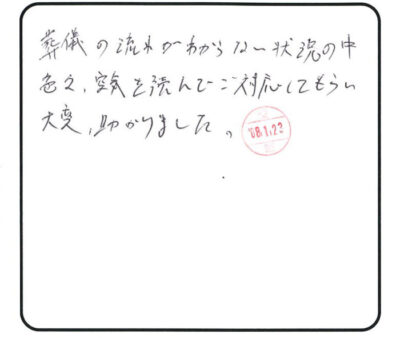 葬儀の流れがわからない状況の中
色々、空気を読んでご対応してもらい
大変、助かりました。
'08.1.22